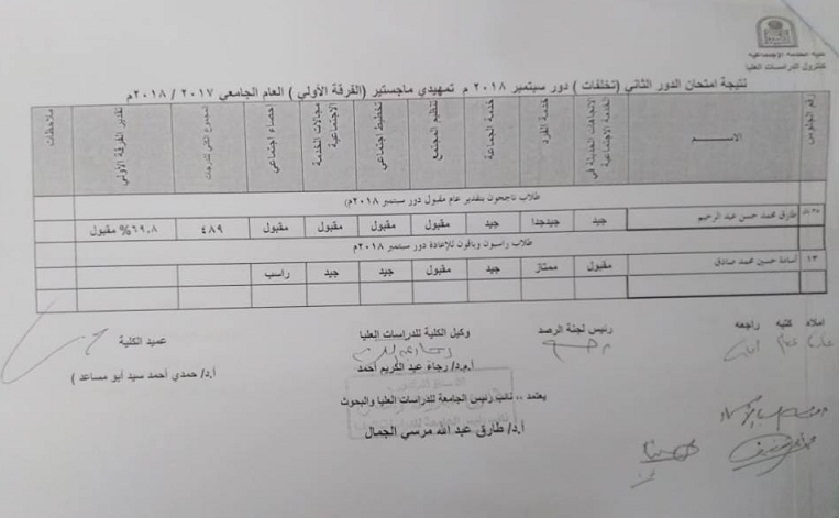 كلية الخدمة الاجتماعية
كنترول الدراسات العليا
نتيجة امتحان الدور الثاني (تخلفات) دور سبتمبر ٢٠١٨ م تمهيدي ماجستير (الفرقة الأولي) العام الجامعي ٢٠١٧ / ٢٠١٨م
رقم الجلوس الاســـم الاتجاهات الحديثة في الخدمة الاجتماعية خدمة الفرد خدمة الجماعة تنظيم المجتمع تخطيط اجتماعي مجالات الخدمة الاجتماعية إحصاء اجتماعي المجموع الكلي للدرجات تقدير الفرقة الأولي ملاحظات
طلاب ناجحون بتقدير عام مقبول دور سبتمبر ٢٠١٨م)
طارق محمد حسن عبد الرحيم جيد جيدجدا جيد مقبول مقبول مقبول مقبول ٤٨٩ ٦٩.٨% مقبول
طلاب راسبون وباقون للإعادة دور سبتمبر ٢٠١٨م
١٣ أسامة حسين محمد صادق مقبول ممتاز جيد مقبول جيد جيد راسب
املاه كتبه راجعه رئيس لجنة الرصد وكيل الكلية للدراسات العليا عميد الكلية
أ.م.د/ رجاء عبد الكريم أحمد أ.د/ حمدي أحمد سيد أبو مساعد )
يعتمد .. نائب رئيس الجامعة للدراسات العليا والبحوث
أ.د/ طارق عبد الله مرسي الجمال